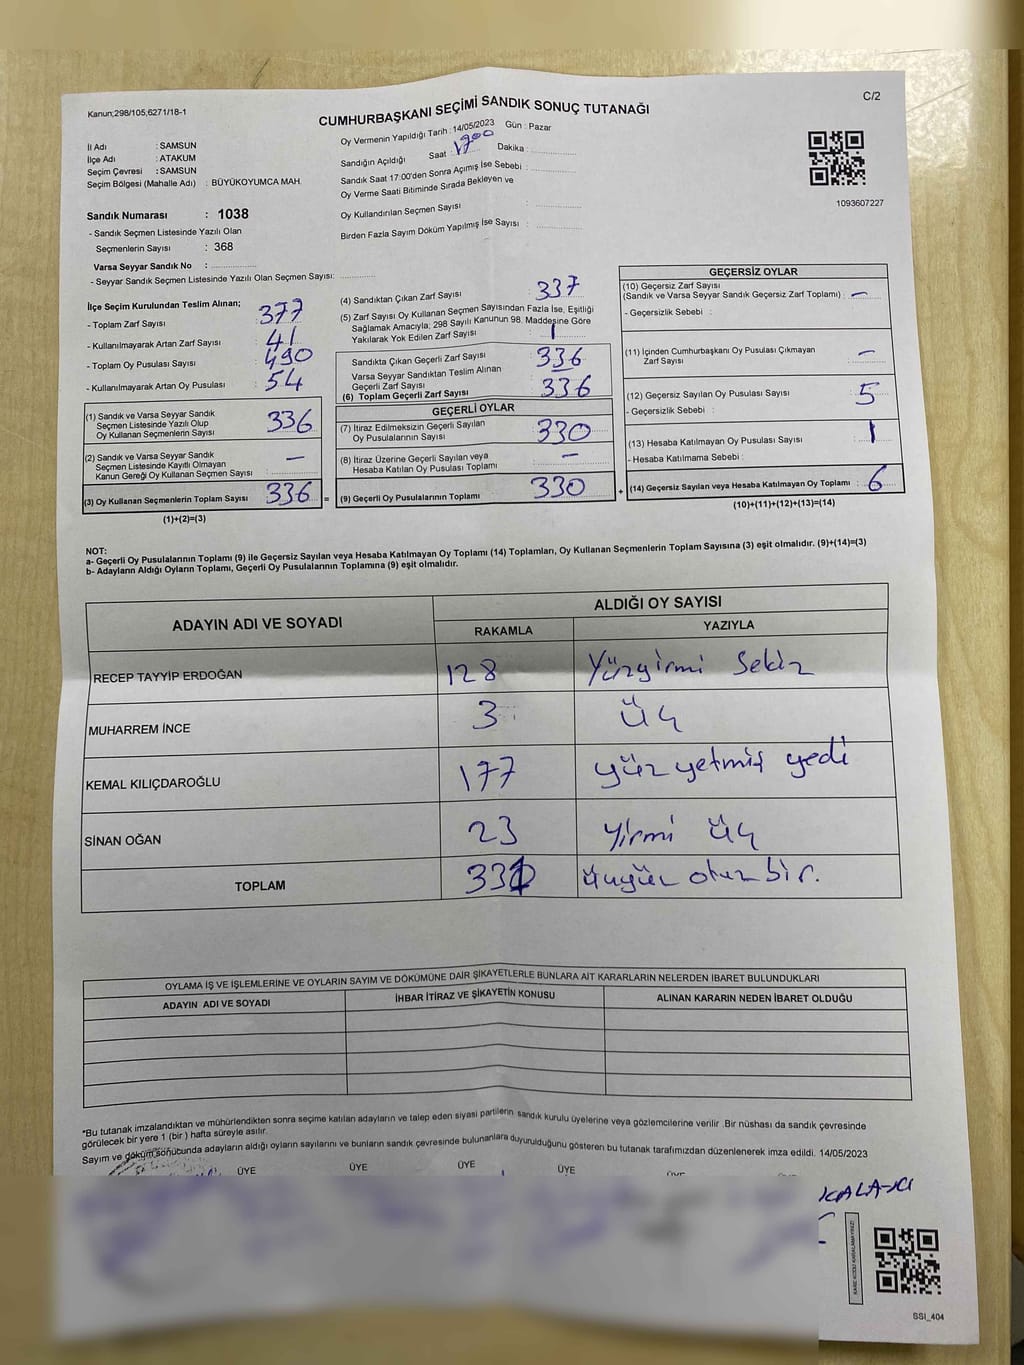 Kanun;298/105,6271/18-1
C/2
CUMHURBAŞKANI SEÇİMİ SANDIK SONUÇ TUTANAĞI
İl Adı : SAMSUN
İlçe Adı : ATAKUM
Seçim Çevresi : SAMSUN
Seçim Bölgesi (Mahalle Adı) : BÜYÜKOYUMCA MAH.
Sandık Numarası : 1038
- Sandık Seçmen Listesinde Yazılı Olan
Seçmenlerin Sayısı : 368
Varsa Seyyar Sandık No :
- Seyyar Sandık Seçmen Listesinde Yazılı Olan Seçmen Sayısı:
Oy Vermenin Yapıldığı Tarih : 14/05/2023 Gün : Pazar
Sandığın Açıldığı Saat : 1700 Dakika :
Sandık Saat 17:00'den Sonra Açımış İse Sebebi :
Oy Verme Saati Bitiminde Sırada Bekleyen ve
Oy Kullandırılan Seçmen Sayısı :
Birden Fazla Sayım Döküm Yapılmış İse Sayısı :
1093607227
İlçe Seçim Kurulundan Teslim Alınan;
- Toplam Zarf Sayısı : 377
- Kullanılmayarak Artan Zarf Sayısı : 41
- Toplam Oy Pusulası Sayısı : 490
- Kullanılmayarak Artan Oy Pusulası : 54
(1) Sandık ve Varsa Seyyar Sandık
Seçmen Listesinde Yazılı Olup
Oy Kullanan Seçmenlerin Sayısı : 336
(2) Sandık ve Varsa Seyyar Sandık
Seçmen Listesinde Kayıtlı Olmayan
Kanun Gereği Oy Kullanan Seçmen Sayısı : –
(3) Oy Kullanan Seçmenlerin Toplam Sayısı : 336 =
(1)+(2)=(3)
(4) Sandıktan Çıkan Zarf Sayısı : 337
(5) Zarf Sayısı Oy Kullanan Seçmen Sayısından Fazla İse, Eşitliği
Sağlamak Amacıyla; 298 Sayılı Kanunun 98. Maddesine Göre
Yakılarak Yok Edilen Zarf Sayısı : 1
Sandıkta Çıkan Geçerli Zarf Sayısı : 336
Varsa Seyyar Sandıktan Teslim Alınan
Geçerli Zarf Sayısı : –
(6) Toplam Geçerli Zarf Sayısı : 336
GEÇERLİ OYLAR
(7) İtiraz Edilmeksizin Geçerli Sayılan
Oy Pusulalarının Sayısı : 330
(8) İtiraz Üzerine Geçerli Sayılan veya
Hesaba Katılan Oy Pusulası Toplamı : –
(9) Geçerli Oy Pusulalarının Toplamı : 330 +
GEÇERSİZ OYLAR
(10) Geçersiz Zarf Sayısı
(Sandık ve Varsa Seyyar Sandık Geçersiz Zarf Toplamı) : –
- Geçersizlik Sebebi :
(11) İçinden Cumhurbaşkanı Oy Pusulası Çıkmayan
Zarf Sayısı : –
(12) Geçersiz Sayılan Oy Pusulası Sayısı : 5
- Geçersizlik Sebebi :
(13) Hesaba Katılmayan Oy Pusulası Sayısı : 1
- Hesaba Katılmama Sebebi :
(14) Geçersiz Sayılan veya Hesaba Katılmayan Oy Toplamı : 6
(10)+(11)+(12)+(13)=(14)
NOT:
a- Geçerli Oy Pusulalarının Toplamı (9) ile Geçersiz Sayılan veya Hesaba Katılmayan Oy Toplamı (14) Toplamları, Oy Kullanan Seçmenlerin Toplam Sayısına (3) eşit olmalıdır. (9)+(14)=(3)
b- Adayların Aldığı Oyların Toplamı, Geçerli Oy Pusulalarının Toplamına (9) eşit olmalıdır.
ADAYIN ADI VE SOYADI ALDIĞI OY SAYISI
RAKAMLA YAZIYLA
RECEP TAYYİP ERDOĞAN 128 Yüzyirmi Sekiz
MUHARREM İNCE 3 üç
KEMAL KILIÇDAROĞLU 177 yüz yetmiş yedi
SİNAN OĞAN 23 Yirmi üç
TOPLAM 331 üçyüz otuz bir.
OYLAMA İŞ VE İŞLEMLERİNE VE OYLARIN SAYIM VE DÖKÜMÜNE DAİR ŞİKAYETLERLE BUNLARA AİT KARARLARIN NELERDEN İBARET BULUNDUKLARI
ADAYIN ADI VE SOYADI İHBAR İTİRAZ VE ŞİKAYETİN KONUSU ALINAN KARARIN NEDEN İBARET OLDUĞU
*Bu tutanak imzalandıktan ve mühürlendikten sonra seçime katılan adayların ve talep eden siyasi partilerin sandık kurulu üyelerine veya gözlemcilerine verilir .Bir nüshası da sandık çevresinde
görülecek bir yere 1 (bir ) hafta süreyle asılır.
Sayım ve döküm sonucunda adayların aldığı oyların sayılarını ve bunların sandık çevresinde bulunanlara duyurulduğunu gösteren bu tutanak tarafımızdan düzenlenerek imza edildi. 14/05/2023
ÜYE ÜYE ÜYE ÜYE
SSI_404